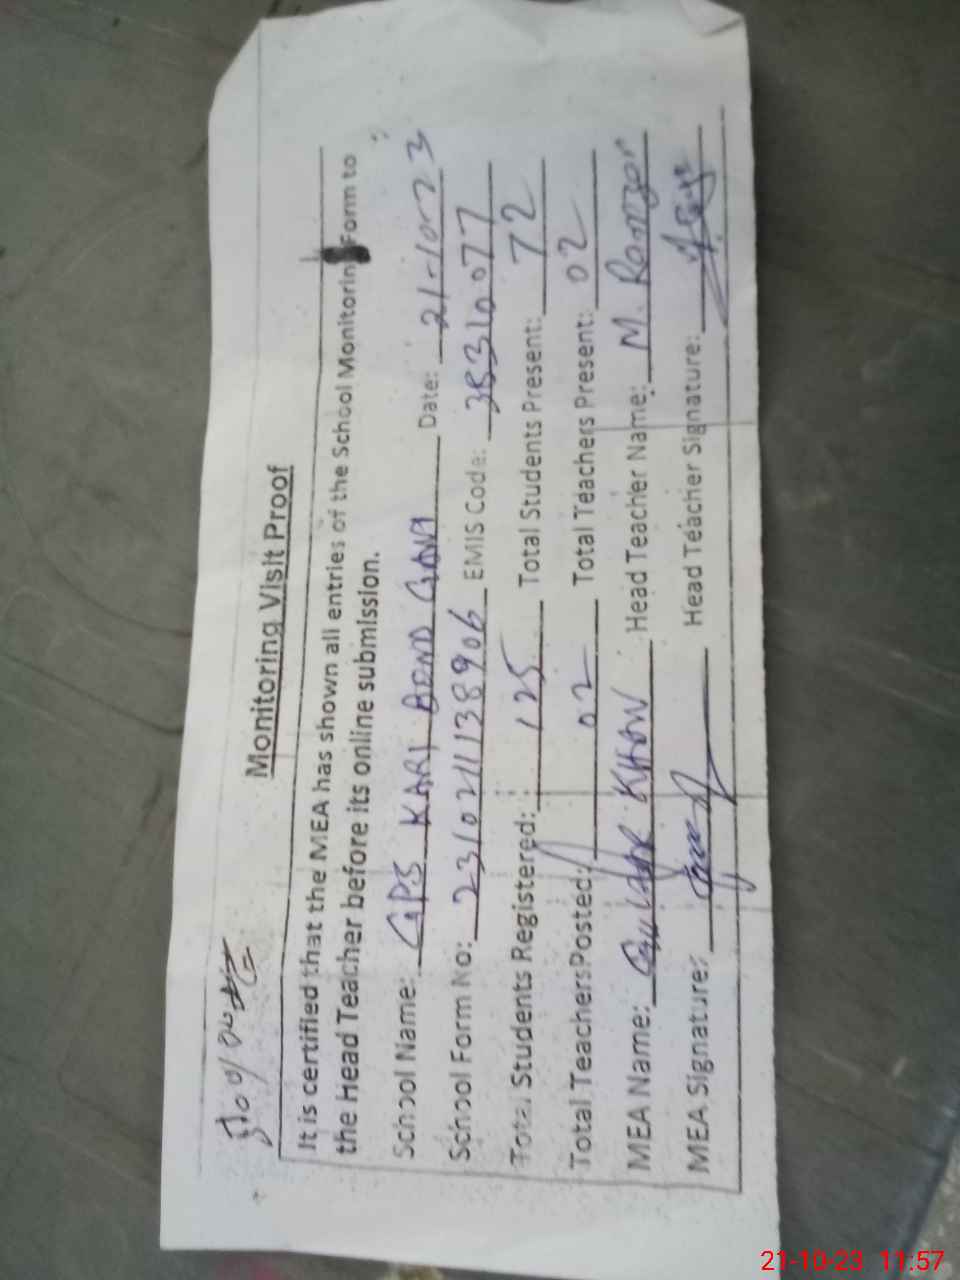 Monitoring Visit Proof
It is certified that the MEA has shown all entries of the School Monitoring Form to
the Head Teacher before its online submission.
School Name: GPS KARI BAND GANI Date: 21-10-23
School Form No: 2310211138906 EMIS Code: 38310077
Total Students Registered: 125 Total Students Present: 72
Total Teachers Posted: 02 Total Teachers Present: 02
MEA Name: KHAN Head Teacher Name: M.
MEA Signature: Head Teacher Signature:
21-10-23 11:57